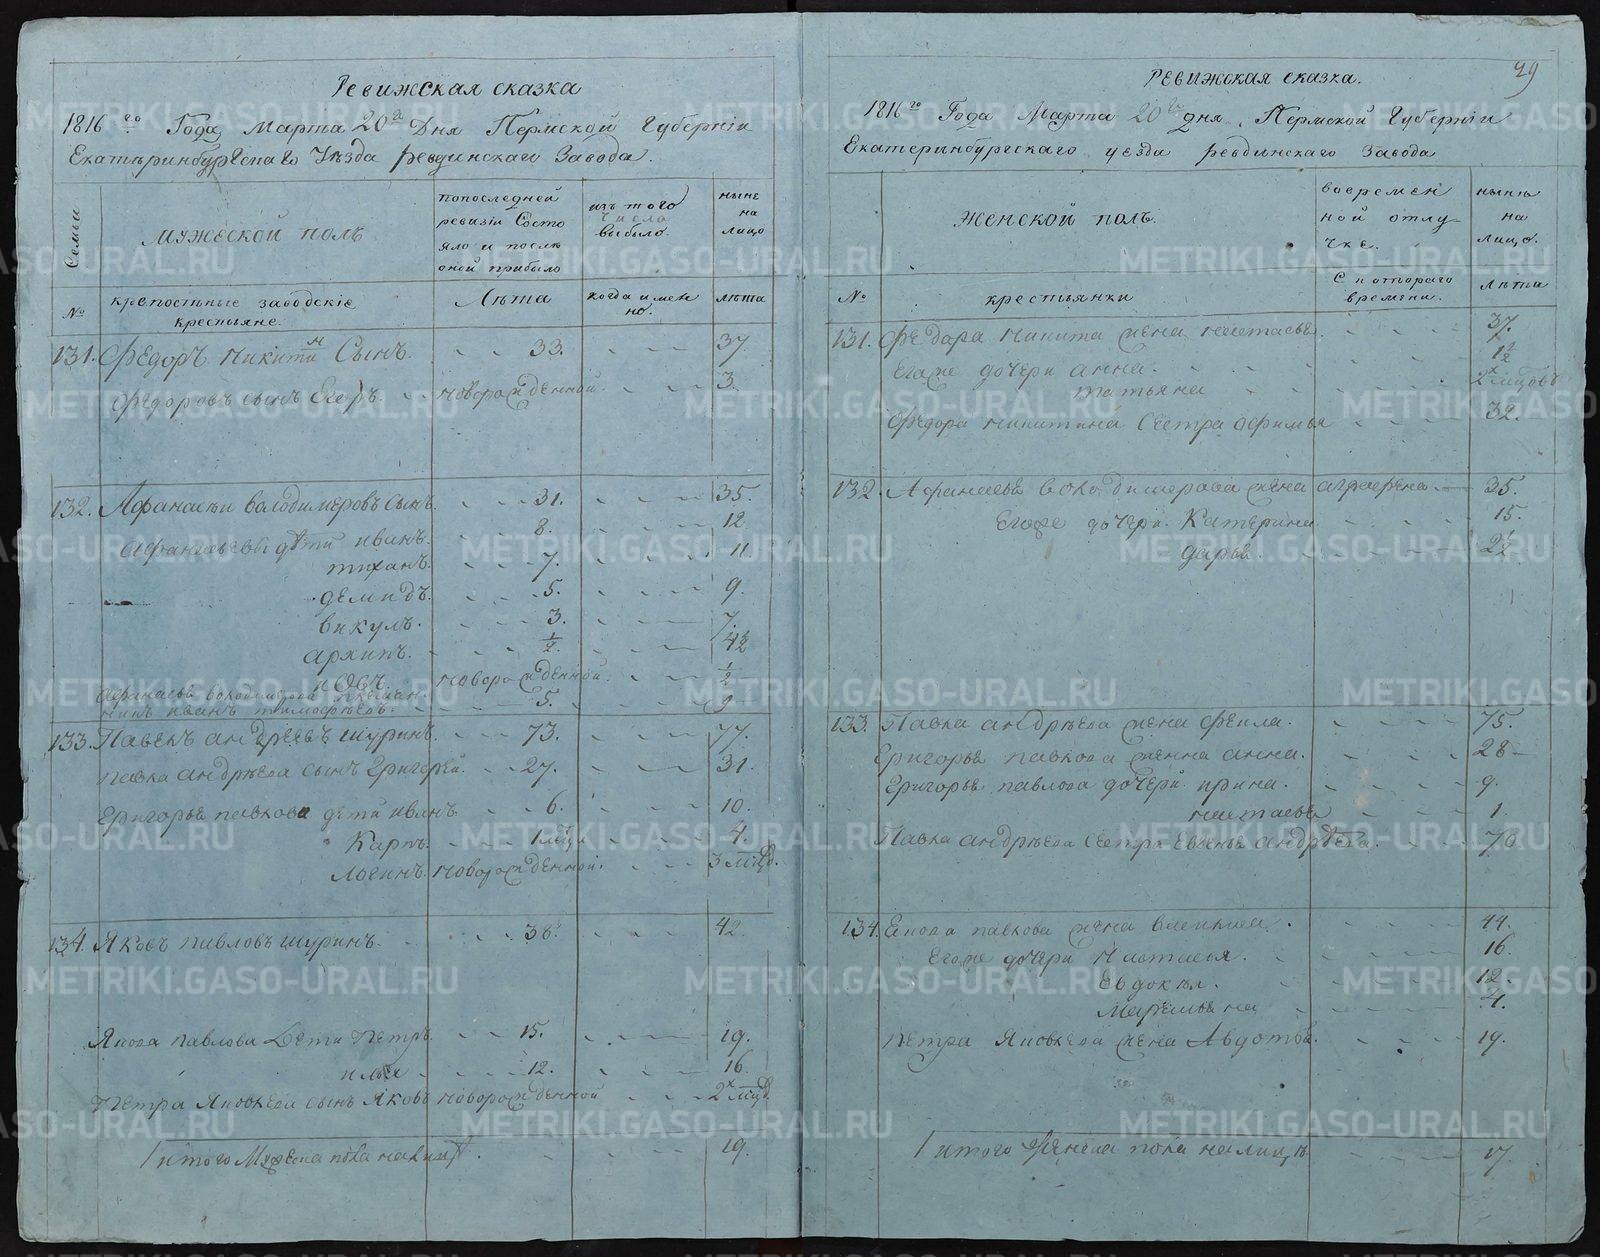 Ревижская сказка
1816 го Года Марта 20 а Дня Пермской Губерніи
Екатеринбургскаго Уезда ревдинскаго Завода.
Семьи
мужеской полъ
попоследней
ревизіи Состо
яло и после
оной прибыло
изъ того
числа
выбыло.
ныне
на
лицо
№
крепостные заводскіе
крестьяне.
Лѣта
когда имен
но.
лѣта
131. Федоръ Никитин Сынъ. 33. 37
Федоровъ сынъ Егоръ. новорожденной. 3.
132. Афанасеи володимеровъ сынъ. 31. 35.
Афанасьевы дети иванъ. 8. 12
тиханъ. 7. 11
демидъ. 5. 9.
викулъ. 3. 7.
архипъ. ½. 4½
новорожденной. ½
Афанасья володимерова племян
никъ иванъ тимофеевъ. 5. 9
133. Павелъ андреевъ шуринъ. 73. 77.
павла андреева сынъ Григорей. 27. 31.
Григорья павлова дети иванъ. 6. 10.
Карпъ. 1 мцъ 4.
Логинъ. новорожденной. 3 мцъ.
134. Яковъ павловъ шуринъ. 38. 42.
Якова павлова Дети Петръ. 15. 19.
илья 12. 16.
Петра Яковлева сынъ Яковъ новорожденной 2х мцъ
Итого Мужеска пола налицо. 19.
49
Ревижская сказка.
1816 го Года Марта 20 го дня. Пермской Губерніи
Екатеринбургскаго уезда ревдинскаго Завода
Женской полъ.
вовремен
ной отлу
чке.
ныне
на
лицо.
№
крестьянки
С котораго
времени.
лѣта
131. Федора Никитина жена настасья. 37.
Егоже дочери анна. 1½
татьяна 2х мцовъ
Федора никитина Сестра афимья 32.
132. Афанасья володимерова жена аграфена. 35.
Егоже дочери. Катерина. 15.
дарья. 2½
133. Павла андреева жена фекла. 75.
Григорья павлова женна анна. 28
Григорья павлова дочери ирина. 9.
настасья 1.
Павла андреева сестра андреева. 70.
134. Якова павлова жена василиса. 44.
Егоже дочери Настасья. 16.
Евдокея. 12.
Маремьяна 4.
Петра Яковлева жена Авдотья. 19.
Итого Женска пола налицо 17.
METRIKI.GASO-URAL.RU